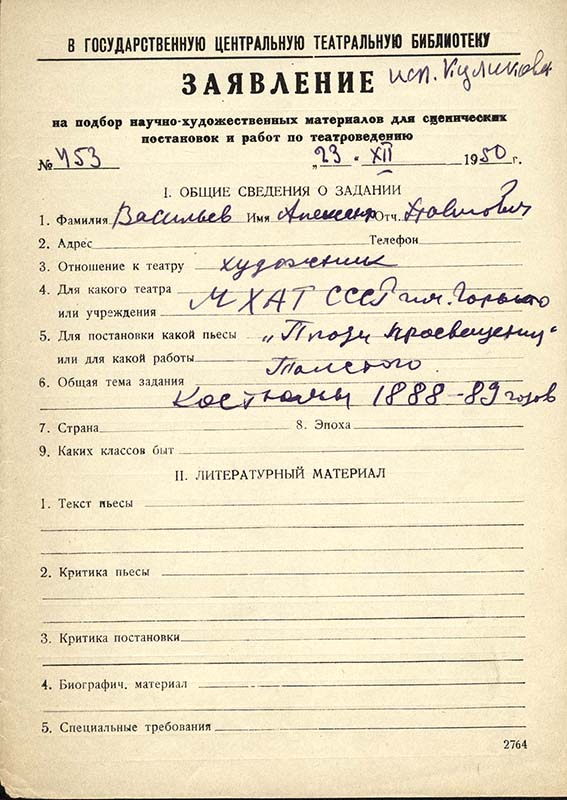 В ГОСУДАРСТВЕННУЮ ЦЕНТРАЛЬНУЮ ТЕАТРАЛЬНУЮ БИБЛИОТЕКУ
ЗАЯВЛЕНИЕ исп. Куликова
на подбор научно-художественных материалов для сценических
постановок и работ по театроведению
№ 453 „23 " XII 1950 г.
I. ОБЩИЕ СВЕДЕНИЯ О ЗАДАНИИ
1. Фамилия Васильев Имя Александр Отч. Павлович
2. Адрес Телефон
3. Отношение к театру художник
4. Для какого театра МХАТ СССР им. Горького
или учреждения
5. Для постановки какой пьесы „Плоды просвещения"
или для какой работы Толстого.
6. Общая тема задания
Костюмы 1888-89 годов
7. Страна 8. Эпоха
9. Каких классов быт
II. ЛИТЕРАТУРНЫЙ МАТЕРИАЛ
1. Текст пьесы
2. Критика пьесы
3. Критика постановки
4. Биографич. материал
5. Специальные требования
2764